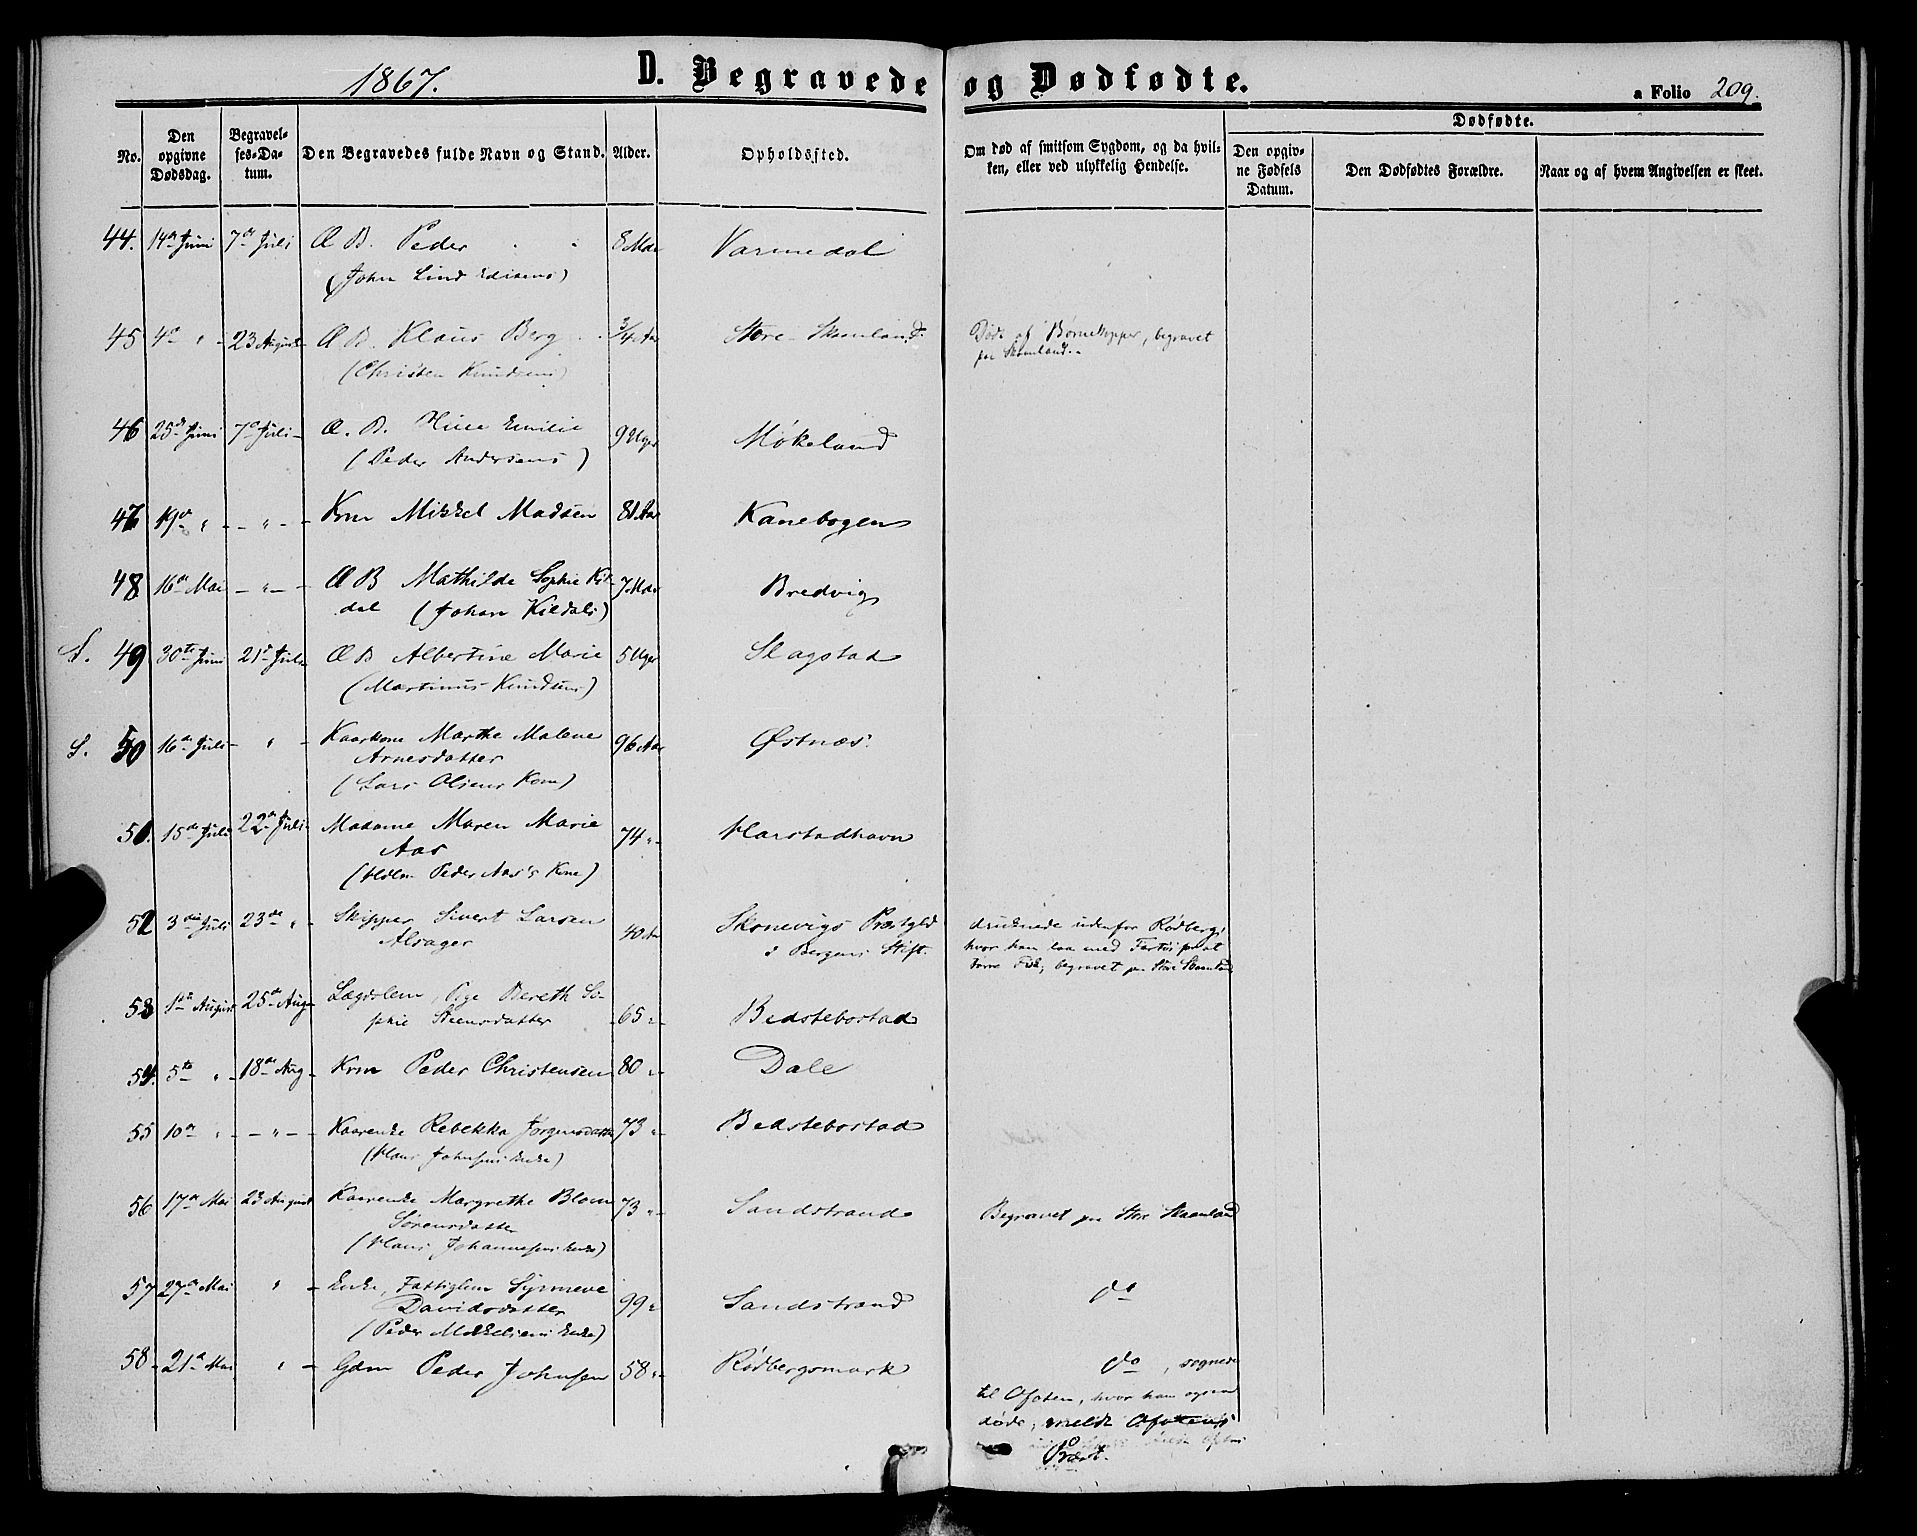 1867.
D. Begravede og Dødfødte.
a Folio 209.
No.
Den opgivne Dødsdag.
Begravel-ses-Da-tum.
Den Begravedes fulde Navn og Stand.
Alder.
Opholdssted.
Om død af smitsom Sygdom, og da hvil-ken, eller ved ulykkelig Hendelse.
Dødfødte.
Den opgiv-ne Fødsels Datum.
Den Dødfødtes Forældre.
Naar og af hvem Angivelsen er skeet.
44. 14de Juni 7de Juli Æ B. Peder 8 Mdr Varmedal
(John Lind
45 4de " 23 August Æ B. Klaus Berg 3/4 Aar Store-Skaanland. Døde af Børnekopper, begravet
(Christen Knudsens) paa Skaanland.
46 25de Juni 7de Juli Æ. B. Emilie 9 Uger Møkeland
(Peder Andersens)
47 19de " " Krm Mikkel Madsen 81 Aar Kanebogen
48 16de Mai " Æ B Mathilde Sophie Kil- 7 Mdr Bredvig
dal (Johan Kildals)
S. 49 30te Juni 21de Juli Æ B Albertine Marie 5 Uger Slagstad
(Martinus Knudsens)
S. 50 16de Juli " Kaarkone Marthe Malene 96 Aar Østnæs.
Arnesdatter
(Lars Olsens Kone)
51. 15de Juli 22de Juli Madame Maren Marie 74 " Harstadhavn
Aas
(Hdlm Peder Aas's Kone)
52 3die Juli 23de " Skipper Sivert Larsen 40 Aar Skonevigs Præstgld druknede udenfor Rødberg,
Alsager i Bergens Stift. hvor han laa med Fartøi for at
tørre Fisk, begravet paa Store Skaanland
53 1ste August 25de Aug Lægdslem, Pige Bereth So- 65 " Bedstebostad
phie Steensdatter
54. 5te " 18de Aug Krm Peder Christensen 80 " Dale
55 10de " " Kaarenke Rebekka Jørgensdatter 73 " Bedstebostad
(Hans Johnsens Enke)
56 17de Mai 23 August Kaarenke Margrethe Blom 73 " Sandstrand Begravet paa Store Skaanland
Sørensdatter
(Hans Johannesens Enke)
57 27de Mai " Enke, Fattiglem Synneve 99 " Sandstrand do
Davidsdatter
(Peder Mikkelsens Enke)
58 21de Mai " Gdm Peder Johnsen 58 " Rødbergsmark do, sognede
til Ofoten, hvor han ogsaa
døde, meldt Ofotens
Præst.